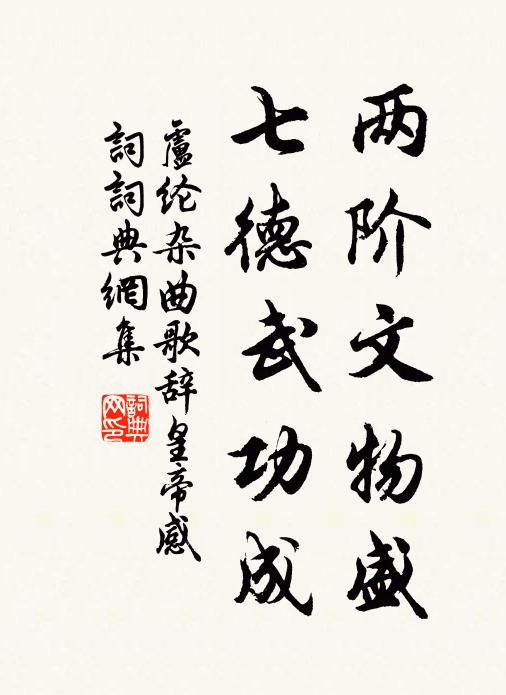 两阶文物盛
七德武功成
盧纶杂曲歌辞皇帝感
詞詞典網集
詞典
网印